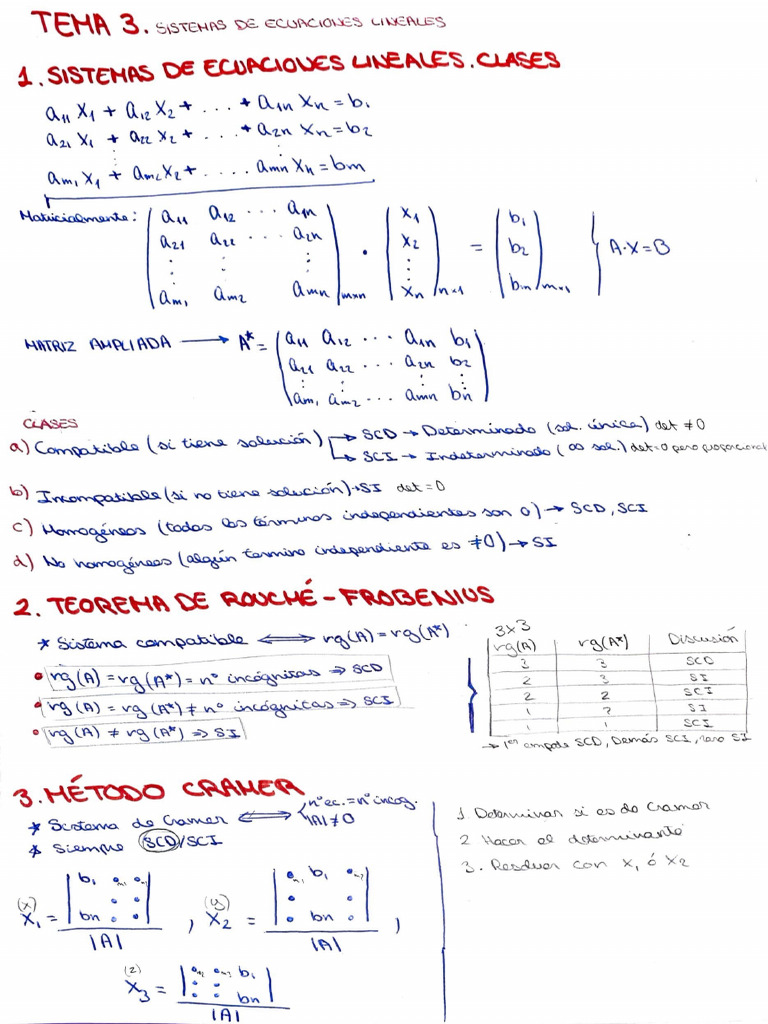 TEMA 3. SISTEMAS DE ECUACIONES LINEALES
1. SISTEMAS DE ECUACIONES LINEALES. CLASES
a₁₁ x₁ + a₁₂ x₂ + . . . + a₁n xn = b₁
a₂₁ x₁ + a₂₂ x₂ + . . . + a₂n xn = b₂
⋮ ⋮
am₁ x₁ + am₂ x₂ + . . . . amn xn = bm
Matricialmente: a₁₁ a₁₂ ... a₁n x₁ b₁
a₂₁ a₂₂ ... a₂n · x₂ = b₂ A·X=B
⋮ ⋮ ⋮ ⋮
am₁ am₂ amn mxn xn nx1 bm mx1
MATRIZ AMPLIADA → A* = a₁₁ a₁₂ ... a₁n b₁
a₂₁ a₂₂ ... a₂n b₂
⋮ ⋮ ⋮ ⋮
am₁ am₂ ... amn bn
CLASES
a) Compatible (si tiene solución) → SCD → Determinado (sol. única) det ≠ 0
→ SCI → Indeterminado (∞ sol.) det=0 pero proporcional
b) Incompatible (si no tiene solución) → SI det = 0
c) Homogéneos (todos los términos independientes son 0) → SCD, SCI
d) No homogéneos (algún termino independiente es ≠0) → SI
2. TEOREMA DE ROUCHÉ - FROBENIUS
* Sistema compatible ⟺ rg(A) = rg(A*)
• rg(A) = rg(A*) = nº incógnitas ⇒ SCD
• rg(A) = rg(A*) ≠ nº incógnitas ⇒ SCI
• rg(A) ≠ rg(A*) ⇒ SI
3x3
rg(A) rg(A*) Discusión
3 3 SCD
2 3 SI
2 2 SCI
1 2 SI
1 1 SCI
→ 1er empate SCD, Demás SCI, raro SI
3. MÉTODO CRAMER
* Sistema de Cramer ⟺ nº ec. = nº incog.
|A| ≠ 0
* Siempre SCD/SCI
(x) x₁ = b₁ bn |A| , (y) x₂ = b₁ bn |A| ,
(z) x₃ = b₁ bn |A|
1 Determinar si es de Cramer
2 Hacer el determinante
3. Resolver con x₁ ó x₂